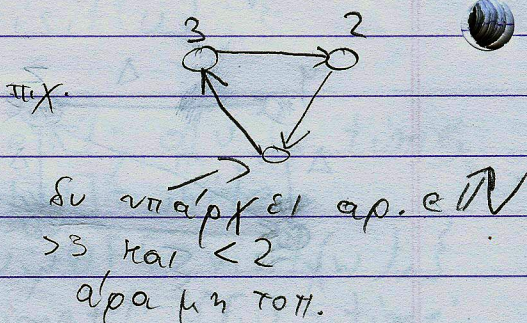 3 2
π.χ.
δυ υπάρχει αρ. ∈ ℕ
>3 και <2
άρα μη τοπ.